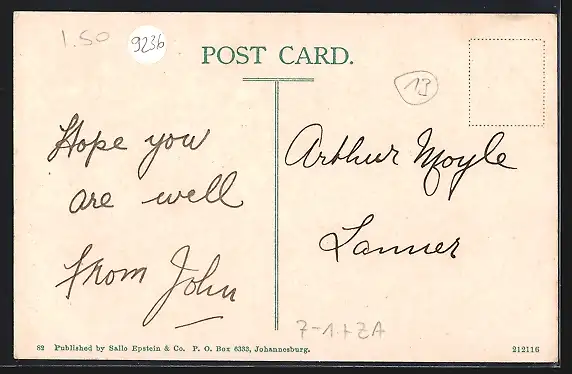 1.50
9236
POST CARD.
13
Hope you
are well
from John
Arthur Moyle
Lanner
7-1+ZA
82 Published by Sallo Epstein & Co. P. O. Box 6333, Johannesburg.
212116